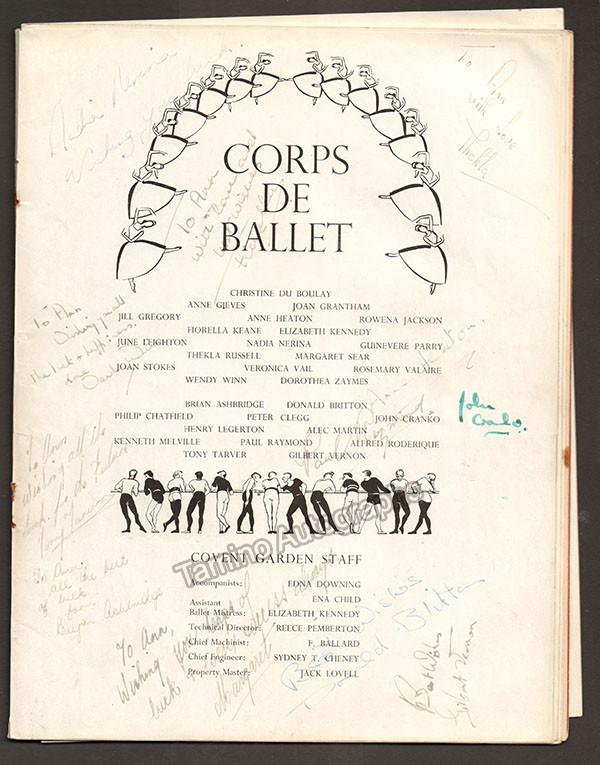 Nadia Nerina
Wishing
To Ann
with love
Thekla
CORPS
DE
BALLET
To Ann
with love and
CHRISTINE DU BOULAY
ANNE GIEVES JOAN GRANTHAM
JILL GREGORY ANNE HEATON ROWENA JACKSON
FIORELLA KEANE ELIZABETH KENNEDY
JUNE LEIGHTON NADIA NERINA GUINEVERE PARRY
THEKLA RUSSELL MARGARET SEAR
JOAN STOKES VERONICA VAIL ROSEMARY VALAIRE
WENDY WINN DOROTHEA ZAYMES
To Ann
Wishing you all
the luck & happiness.
love
Anne Heaton
BRIAN ASHBRIDGE DONALD BRITTON
PHILIP CHATFIELD PETER CLEGG JOHN CRANKO
HENRY LEGERTON ALEC MARTIN
KENNETH MELVILLE PAUL RAYMOND ALFRED RODERIQUE
TONY TARVER GILBERT VERNON
John
Cranko.
Paul Raymond
To Ann
Wishing all the
luck for the future
Tony Tarver
Tamino Autographs
COVENT GARDEN STAFF
Accompanists: EDNA DOWNING
ENA CHILD
Assistant
Ballet Mistress: ELIZABETH KENNEDY
Technical Director: REECE PEMBERTON
Chief Machinist: F. BALLARD
Chief Engineer: SYDNEY T. CHENEY
Property Master: JACK LOVELL
To Ann
all the best
of luck
from
Bryan Ashbridge
To Ann,
Wishing you lots of
luck and success always
Margaret
Best Wishes
Donald Britton
Best Wishes
Gilbert Vernon